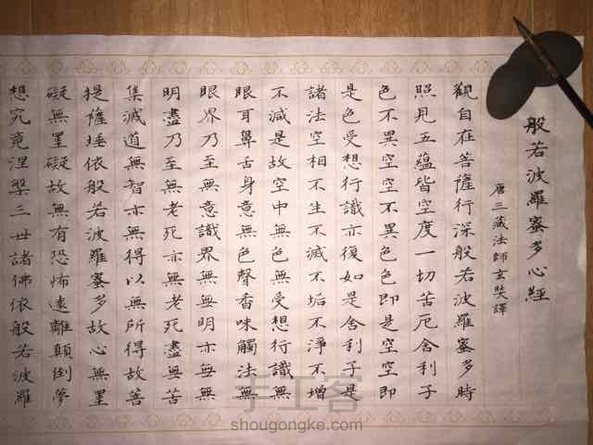 般若波羅蜜多心經
唐三藏法師玄奘譯
觀自在菩薩行深般若波羅蜜多時
照見五蘊皆空度一切苦厄舍利子
色不異空空不異色色即是空空即
是色受想行識亦復如是舍利子是
諸法空相不生不滅不垢不淨不增
不減是故空中無色無受想行識無
眼耳鼻舌身意無色聲香味觸法無
眼界乃至無意識界無無明亦無無
明盡乃至無老死亦無老死盡無苦
集滅道無智亦無得以無所得故菩
提薩埵依般若波羅蜜多故心無罣
礙無罣礙故無有恐怖遠離顛倒夢
想究竟涅槃三世諸佛依般若波羅
手工客
shougongke.com